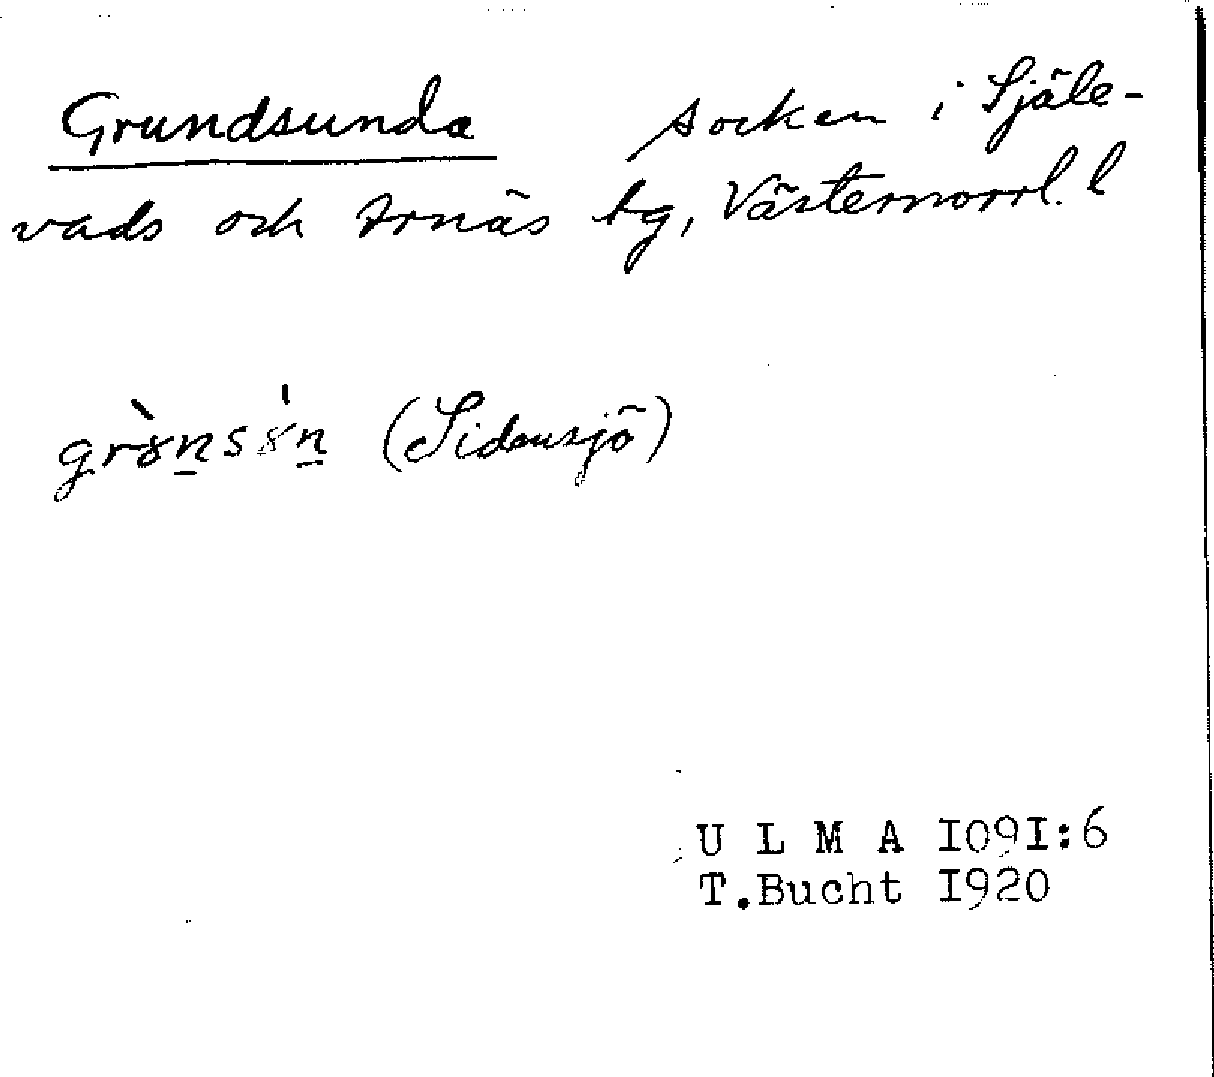 Grundsunda socken i Själe-
vads och Arnäs tg, Västernorrl. l
grȣ̀n̲sȣ̍n̲ (Sidensjö)
U L M A I09I:6
T.Bucht I920